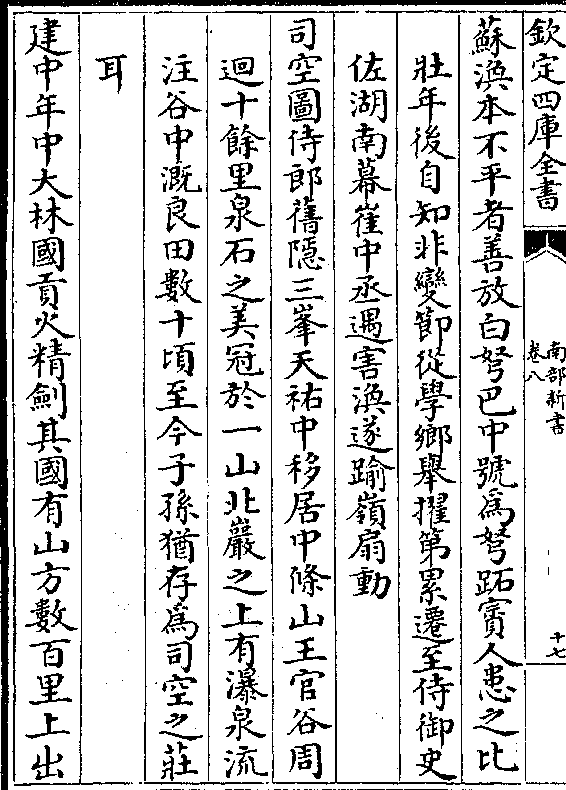 欽定四庫全書
南部新書
卷八
十七
蘇渙本不平者善放白弩巴中號為弩跖賨人患之比
壯年後自知非變節從學鄉舉擢第累遷至侍御史
佐湖南幕崔中丞遇害渙遂踰嶺扇動
司空圖侍郎舊隱三峯天祐中移居中條山王官谷周
迴十餘里泉石之美冠於一山北巖之上有瀑泉流
注谷中溉良田數十頃至今子孫猶存為司空之莊
耳
建中年中大林國貢火精劍其國有山方數百里上出